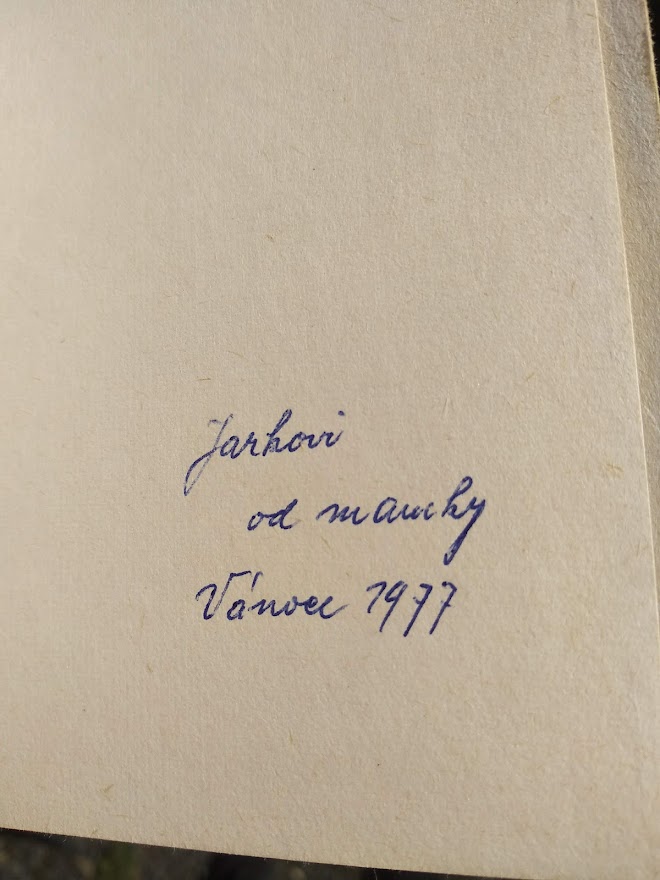 Jarkovi
od mamky
Vánoce 1977